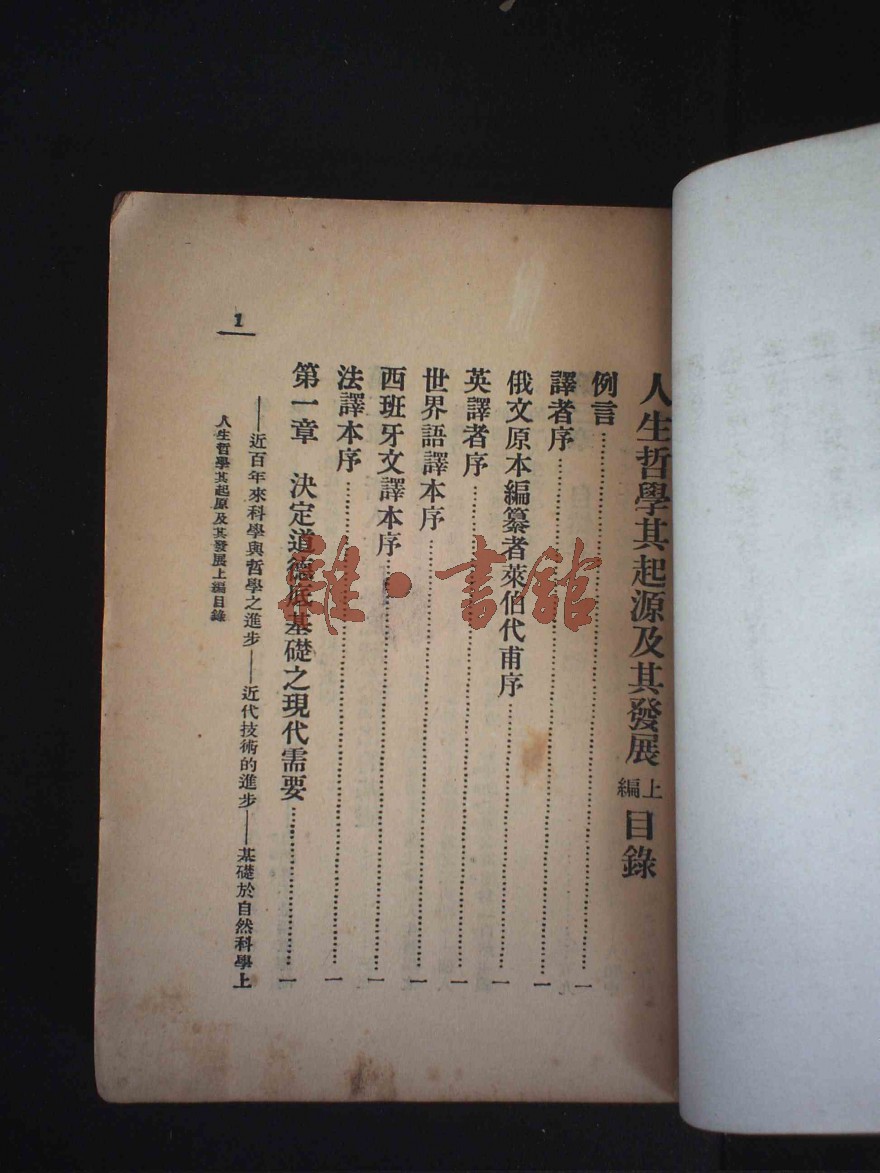 人生哲學其起源及其發展上編目錄
例言……一
譯者序……一
俄文原本編纂者萊伯代甫序……一
英譯者序……一
世界語譯本序……一
西班牙文譯本序……一
法譯本序……一
第一章 決定道德底基礎之現代需要……一
——近百年來科學與哲學之進步——近代技術的進步——基礎於自然科學上
人生哲學其起原及其發展上編目錄
1
雜·書館